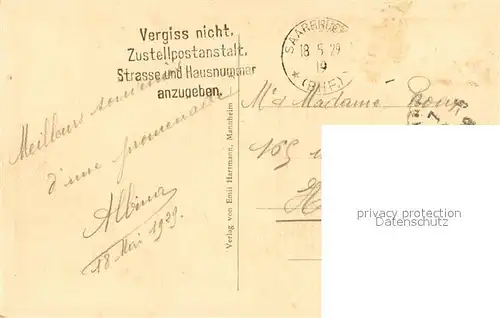 Vergiss nicht,
Zustellpostanstalt,
Strasse und Hausnummer
anzugeben.
SAARBRÜCK
18 5 29
19
* (BHF)
Meilleurs souvenirs
d'une promenade
Albina
18 Mai 1929
Verlag von Emil Hartmann, Mannheim
Mr Madame
privacy protection
Datenschutz